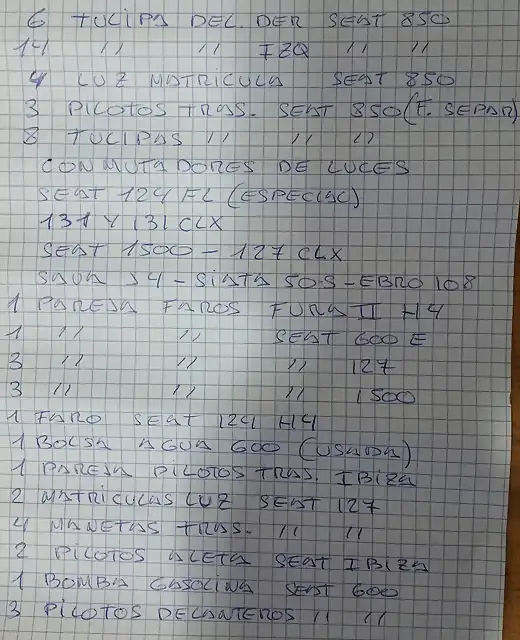 6 TULIPA DEL. DER SEAT 850
14 " " IZQ " "
4 LUZ MATRICULA SEAT 850
3 PILOTOS TRAS. SEAT 850 (F. SEPAR)
8 TULIPAS " " "
CONMUTADORES DE LUCES
SEAT 124 FL (ESPECIAL)
131 Y 131 CLX
SEAT 1500 - 127 CLX
SAVA J4 - SIATA 50-S - EBRO 108
1 PAREJA FAROS FURA II H4
1 " " SEAT 600 E
3 " " " 127
3 " " " 1500
1 FARO SEAT 124 H4
1 BOLSA AGUA 600 (USADA)
1 PAREJA PILOTOS TRAS. IBIZA
2 MATRICULAS LUZ SEAT 127
4 MANETAS TRAS. " "
2 PILOTOS ALETA SEAT IBIZA
1 BOMBA GASOLINA SEAT 600
3 PILOTOS DELANTEROS " "